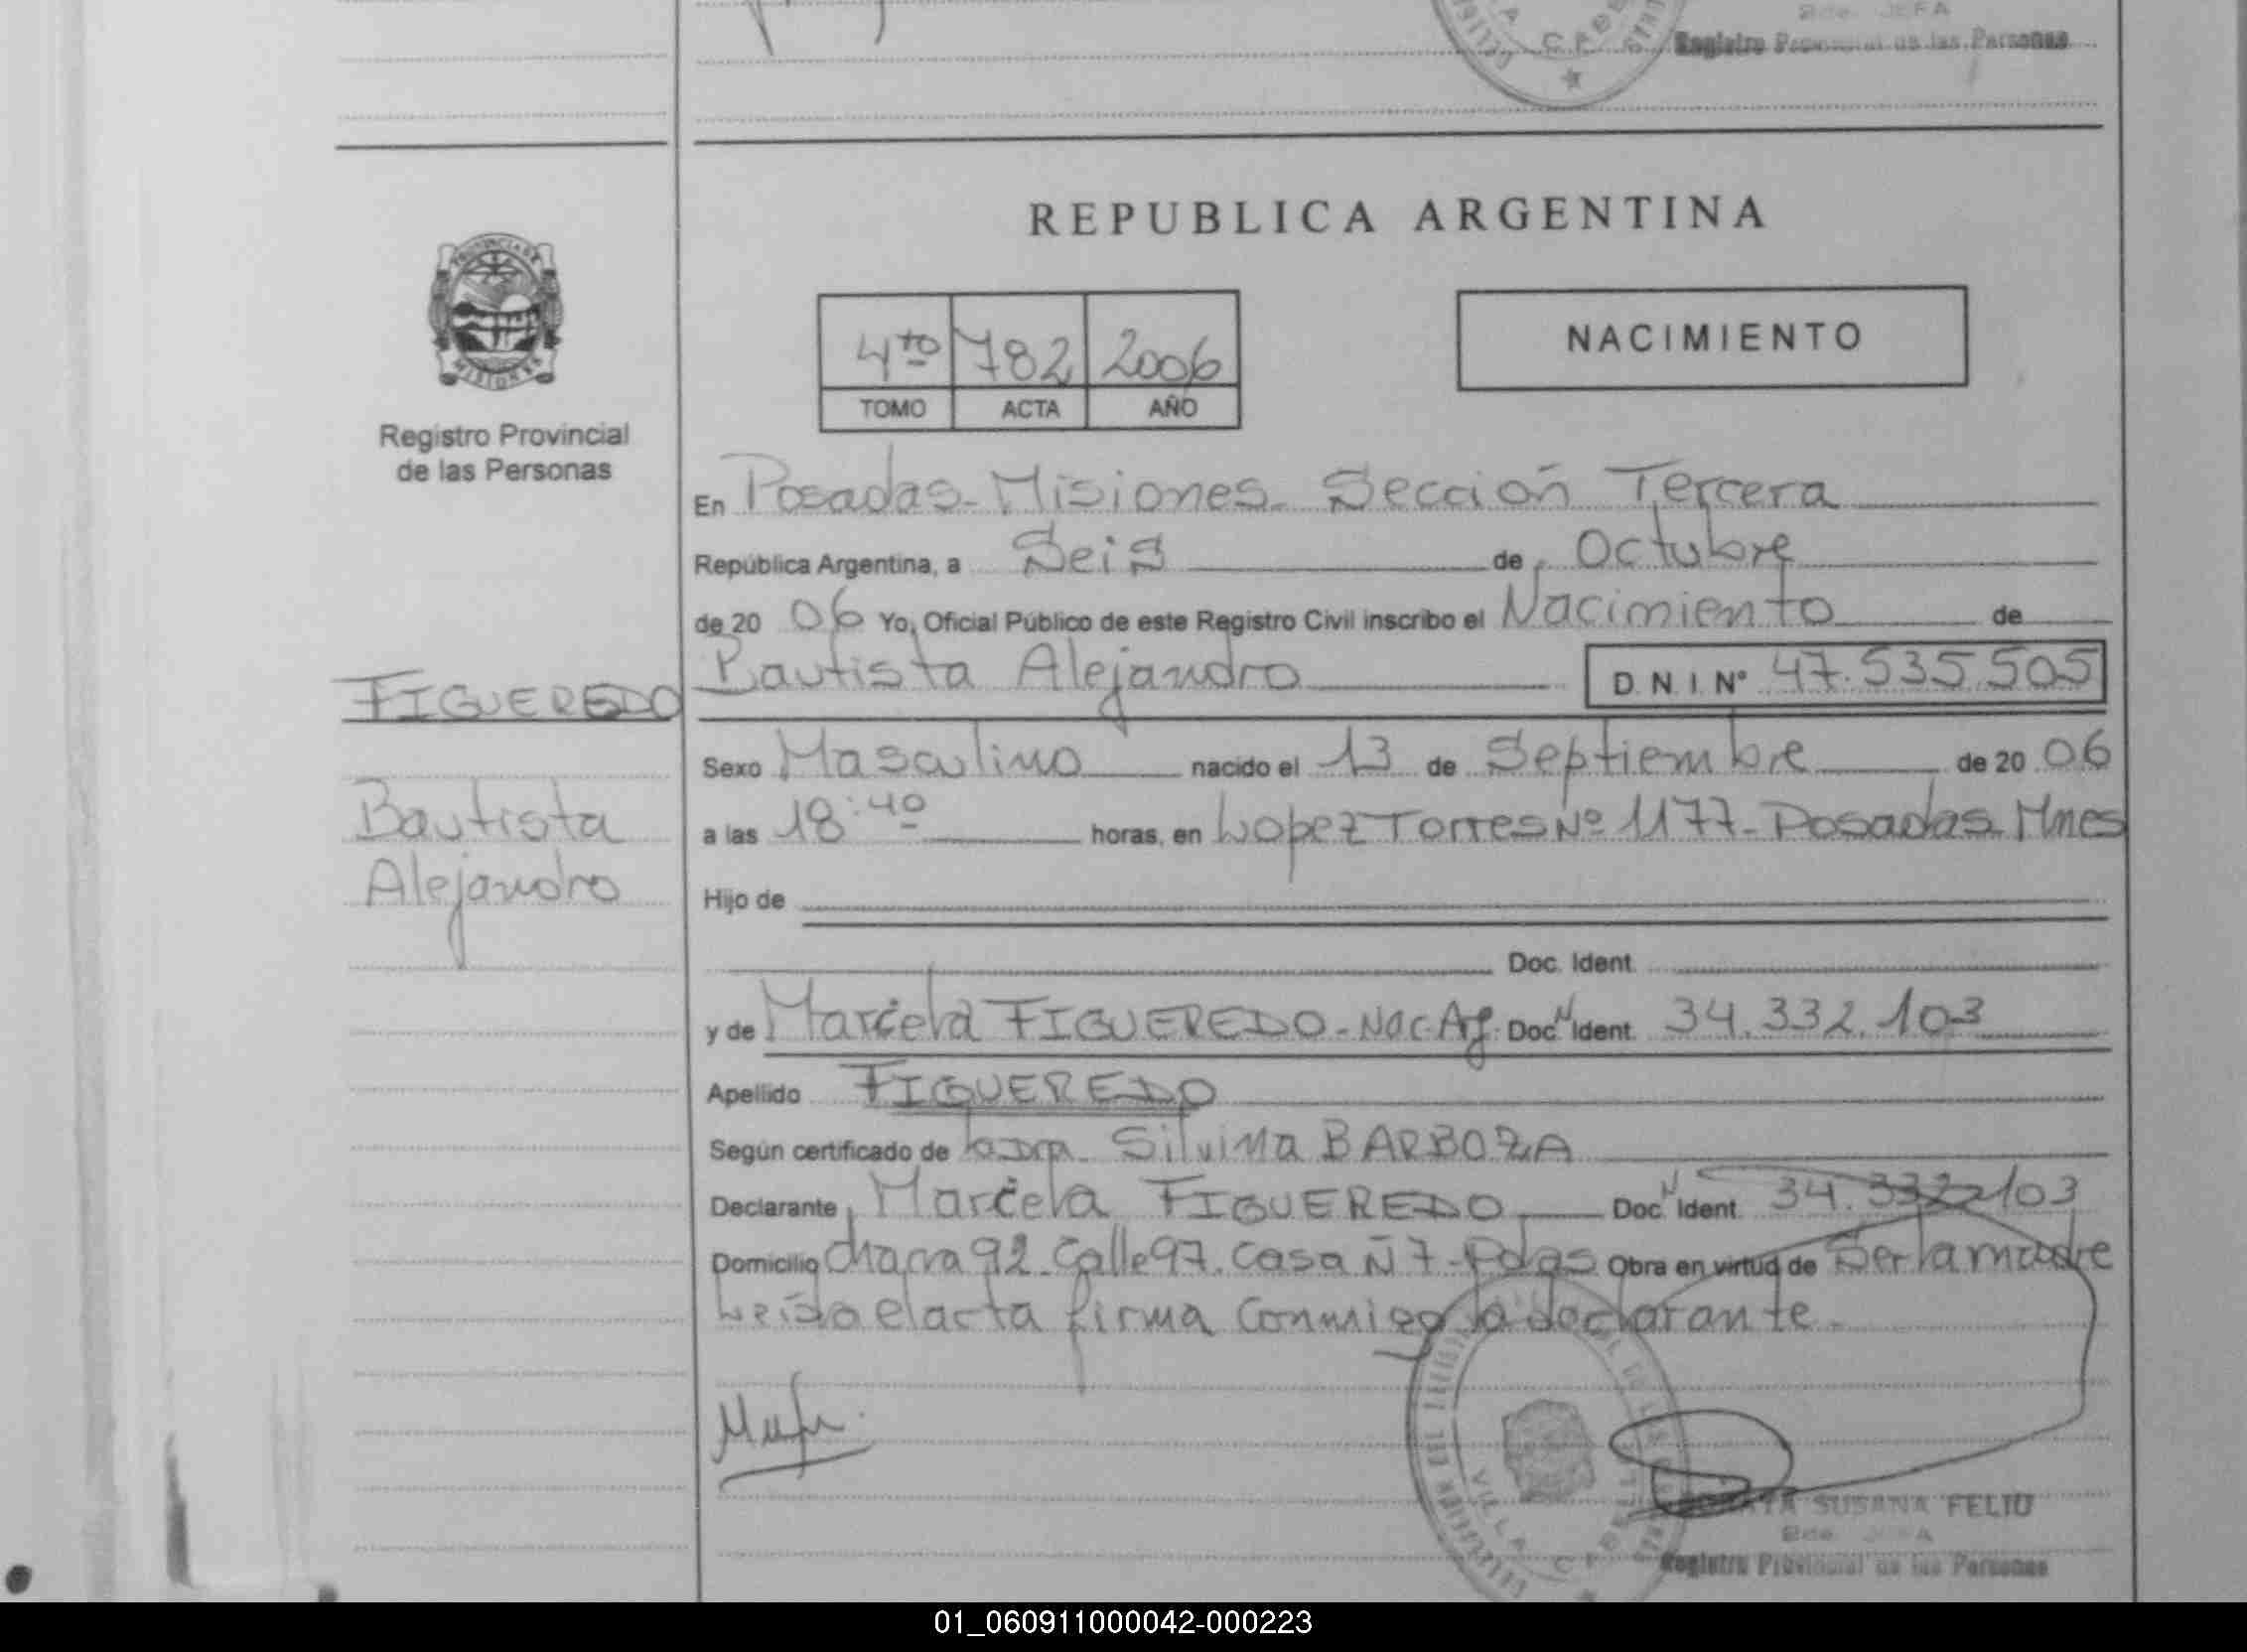 Registro Provincial de las Personas
REPUBLICA ARGENTINA
PROVINCIA DE
MISIONES
Registro Provincial
de las Personas
4to 782 2006
TOMO ACTA AÑO
NACIMIENTO
En Posadas-Misiones- Sección Tercera
República Argentina, a Seis de Octubre
de 20 06 Yo, Oficial Público de este Registro Civil inscribo el Nacimiento de
Bautista Alejandro D.N.I. Nº 47.535.505
FIGUEREDO
Bautista
Alejandro
Sexo Masculino nacido el 13 de Septiembre de 20 06
a las 18:40 horas, en Lopez Torres Nº 1177-Posadas-Mnes
Hijo de
Doc. Ident.
y de Marcela FIGUEREDO-Nac. Arg. Doc. Ident. 34.332.103
Apellido FIGUEREDO
Según certificado de la Dra. Silvina BARBOZA
Declarante Marcela FIGUEREDO Doc. Ident. 34.332.103
Domicilio Chacra 92-Calle 97. Casa Nº 7-Pdas Obra en virtud de Ser la madre
Leída el acta firma conmigo la declarante.
VILLA CABELLO
SUSANA FELIU
Registro Provincial de las Personas
01_060911000042-000223